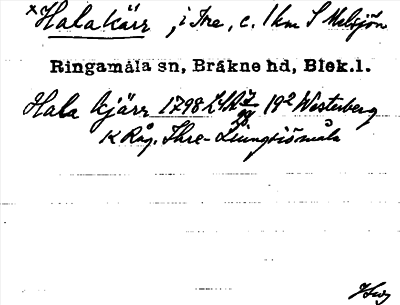 × Halakärr, i Ire, c. 1 km S Melsjön
Ringamåla sn, Bräkne hd, Blek. l.
Hala kjärr 1798 19² Westerberg
K Råg. Ihre-Liungsiömåla